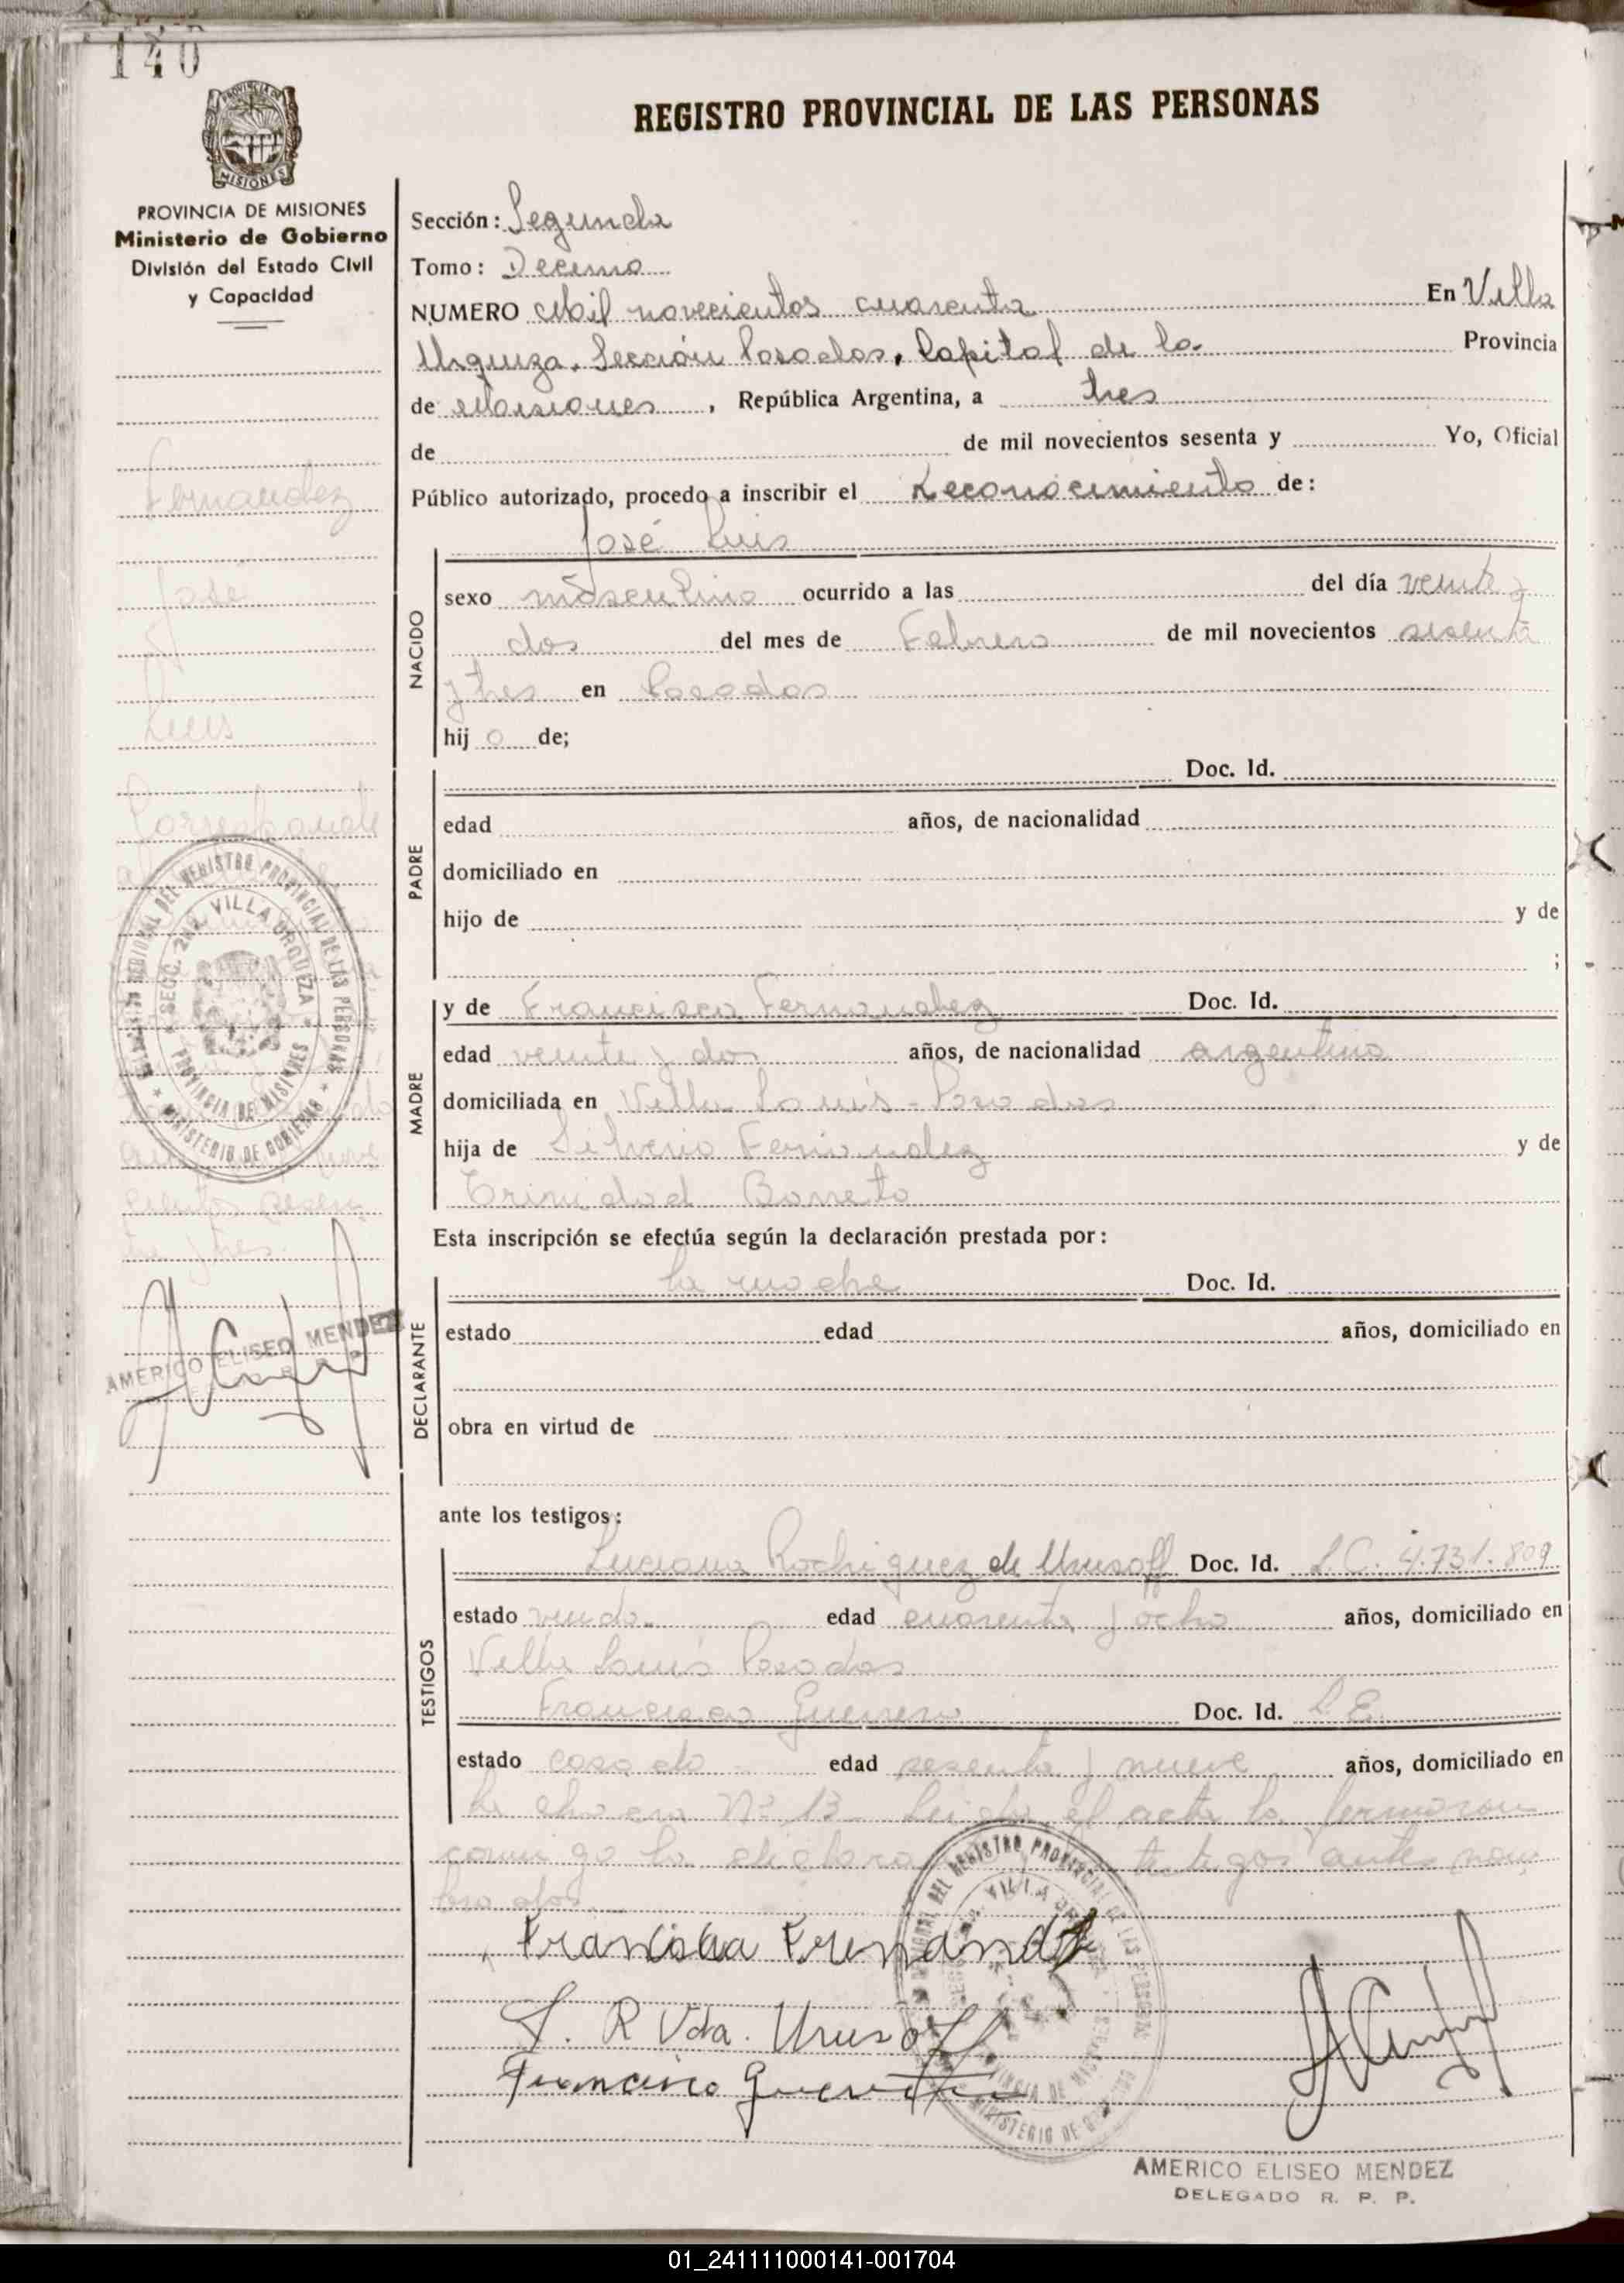 140
PROVINCIA DE MISIONES
Ministerio de Gobierno
División del Estado Civil
y Capacidad
REGISTRO PROVINCIAL DE LAS PERSONAS
Sección: Segunda
Tomo: Decimo
NUMERO Mil novecientos cuarenta En Villa
Urquiza. Sección Posadas, Capital de la Provincia
de Misiones, República Argentina, a tres
de de mil novecientos sesenta y Yo, Oficial
Público autorizado, procedo a inscribir el Reconocimiento de:
José Luis
NACIDO
sexo masculino ocurrido a las del día veinte y
dos del mes de Febrero de mil novecientos sesenta
y tres en Posadas
hijo de;
PADRE
Doc. Id.
edad años, de nacionalidad
domiciliado en
hijo de y de
;
MADRE
y de Francisca Fernandez Doc. Id.
edad veinte y dos años, de nacionalidad argentina
domiciliada en Villa Lanus - Posadas
hija de Silverio Fernandez y de
Trinidad Barreto
Esta inscripción se efectúa según la declaración prestada por:
DECLARANTE
la madre Doc. Id.
estado edad años, domiciliado en
obra en virtud de
ante los testigos:
TESTIGOS
Luciana Rodriguez de Urusoff Doc. Id. L.C. 4.731.809
estado viuda edad cuarenta y ocho años, domiciliado en
Villa Lanús Posadas
Francisco Guerrero Doc. Id. L.E.
estado casado edad sesenta y nueve años, domiciliado en
la chacra Nº 13 - Leida el acta la firmaron
conmigo la testigos antes nom
brados.
Francisca Frenandez
L. R Vda. Urusoff
Francisco
AMERICO ELISEO MENDEZ
DELEGADO R. P. P.
Fernandez
José
Luis
Corresponde
sesen
ta y tres.
REGISTRO PROVINCIAL DE LAS PERSONAS
SECC. 2da. VILLA URQUIZA
PROVINCIA DE MISIONES
MINISTERIO DE GOBIERNO
AMERICO ELISEO MENDEZ
01_241111000141-001704